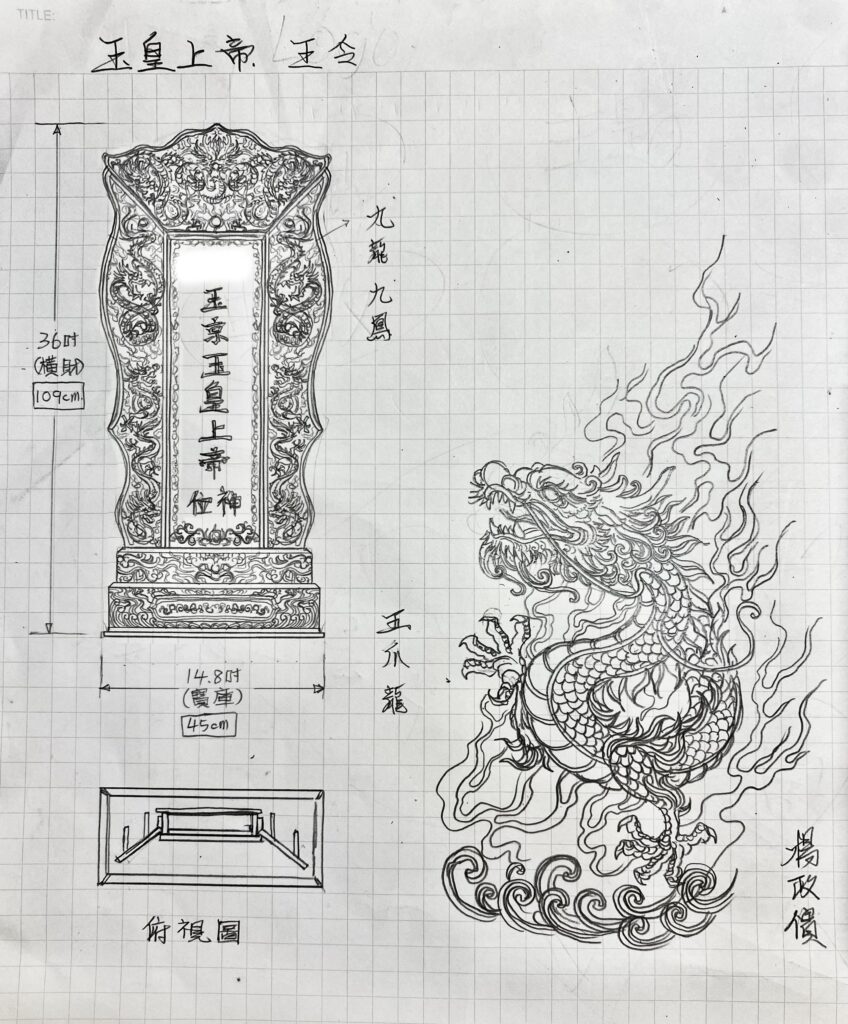 TITLE:
玉皇上帝 王令
九龍九鳳
36吋
(橫財)
109cm
玉京玉皇上帝
神位
五爪龍
14.8吋
(寶庫)
45cm
俯視圖
楊政